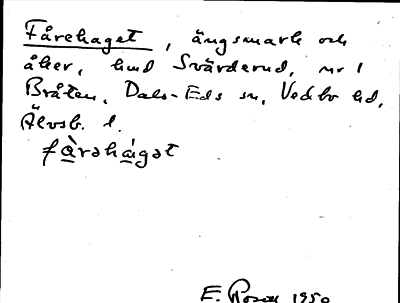 Fårehaget, ängsmark och
åker, hmd Svärderud, nr 1
Bråten, Dals-Eds sn, Vedbo hd,
Älvsb. l.
fàrəhágət
E. Rosell 1950